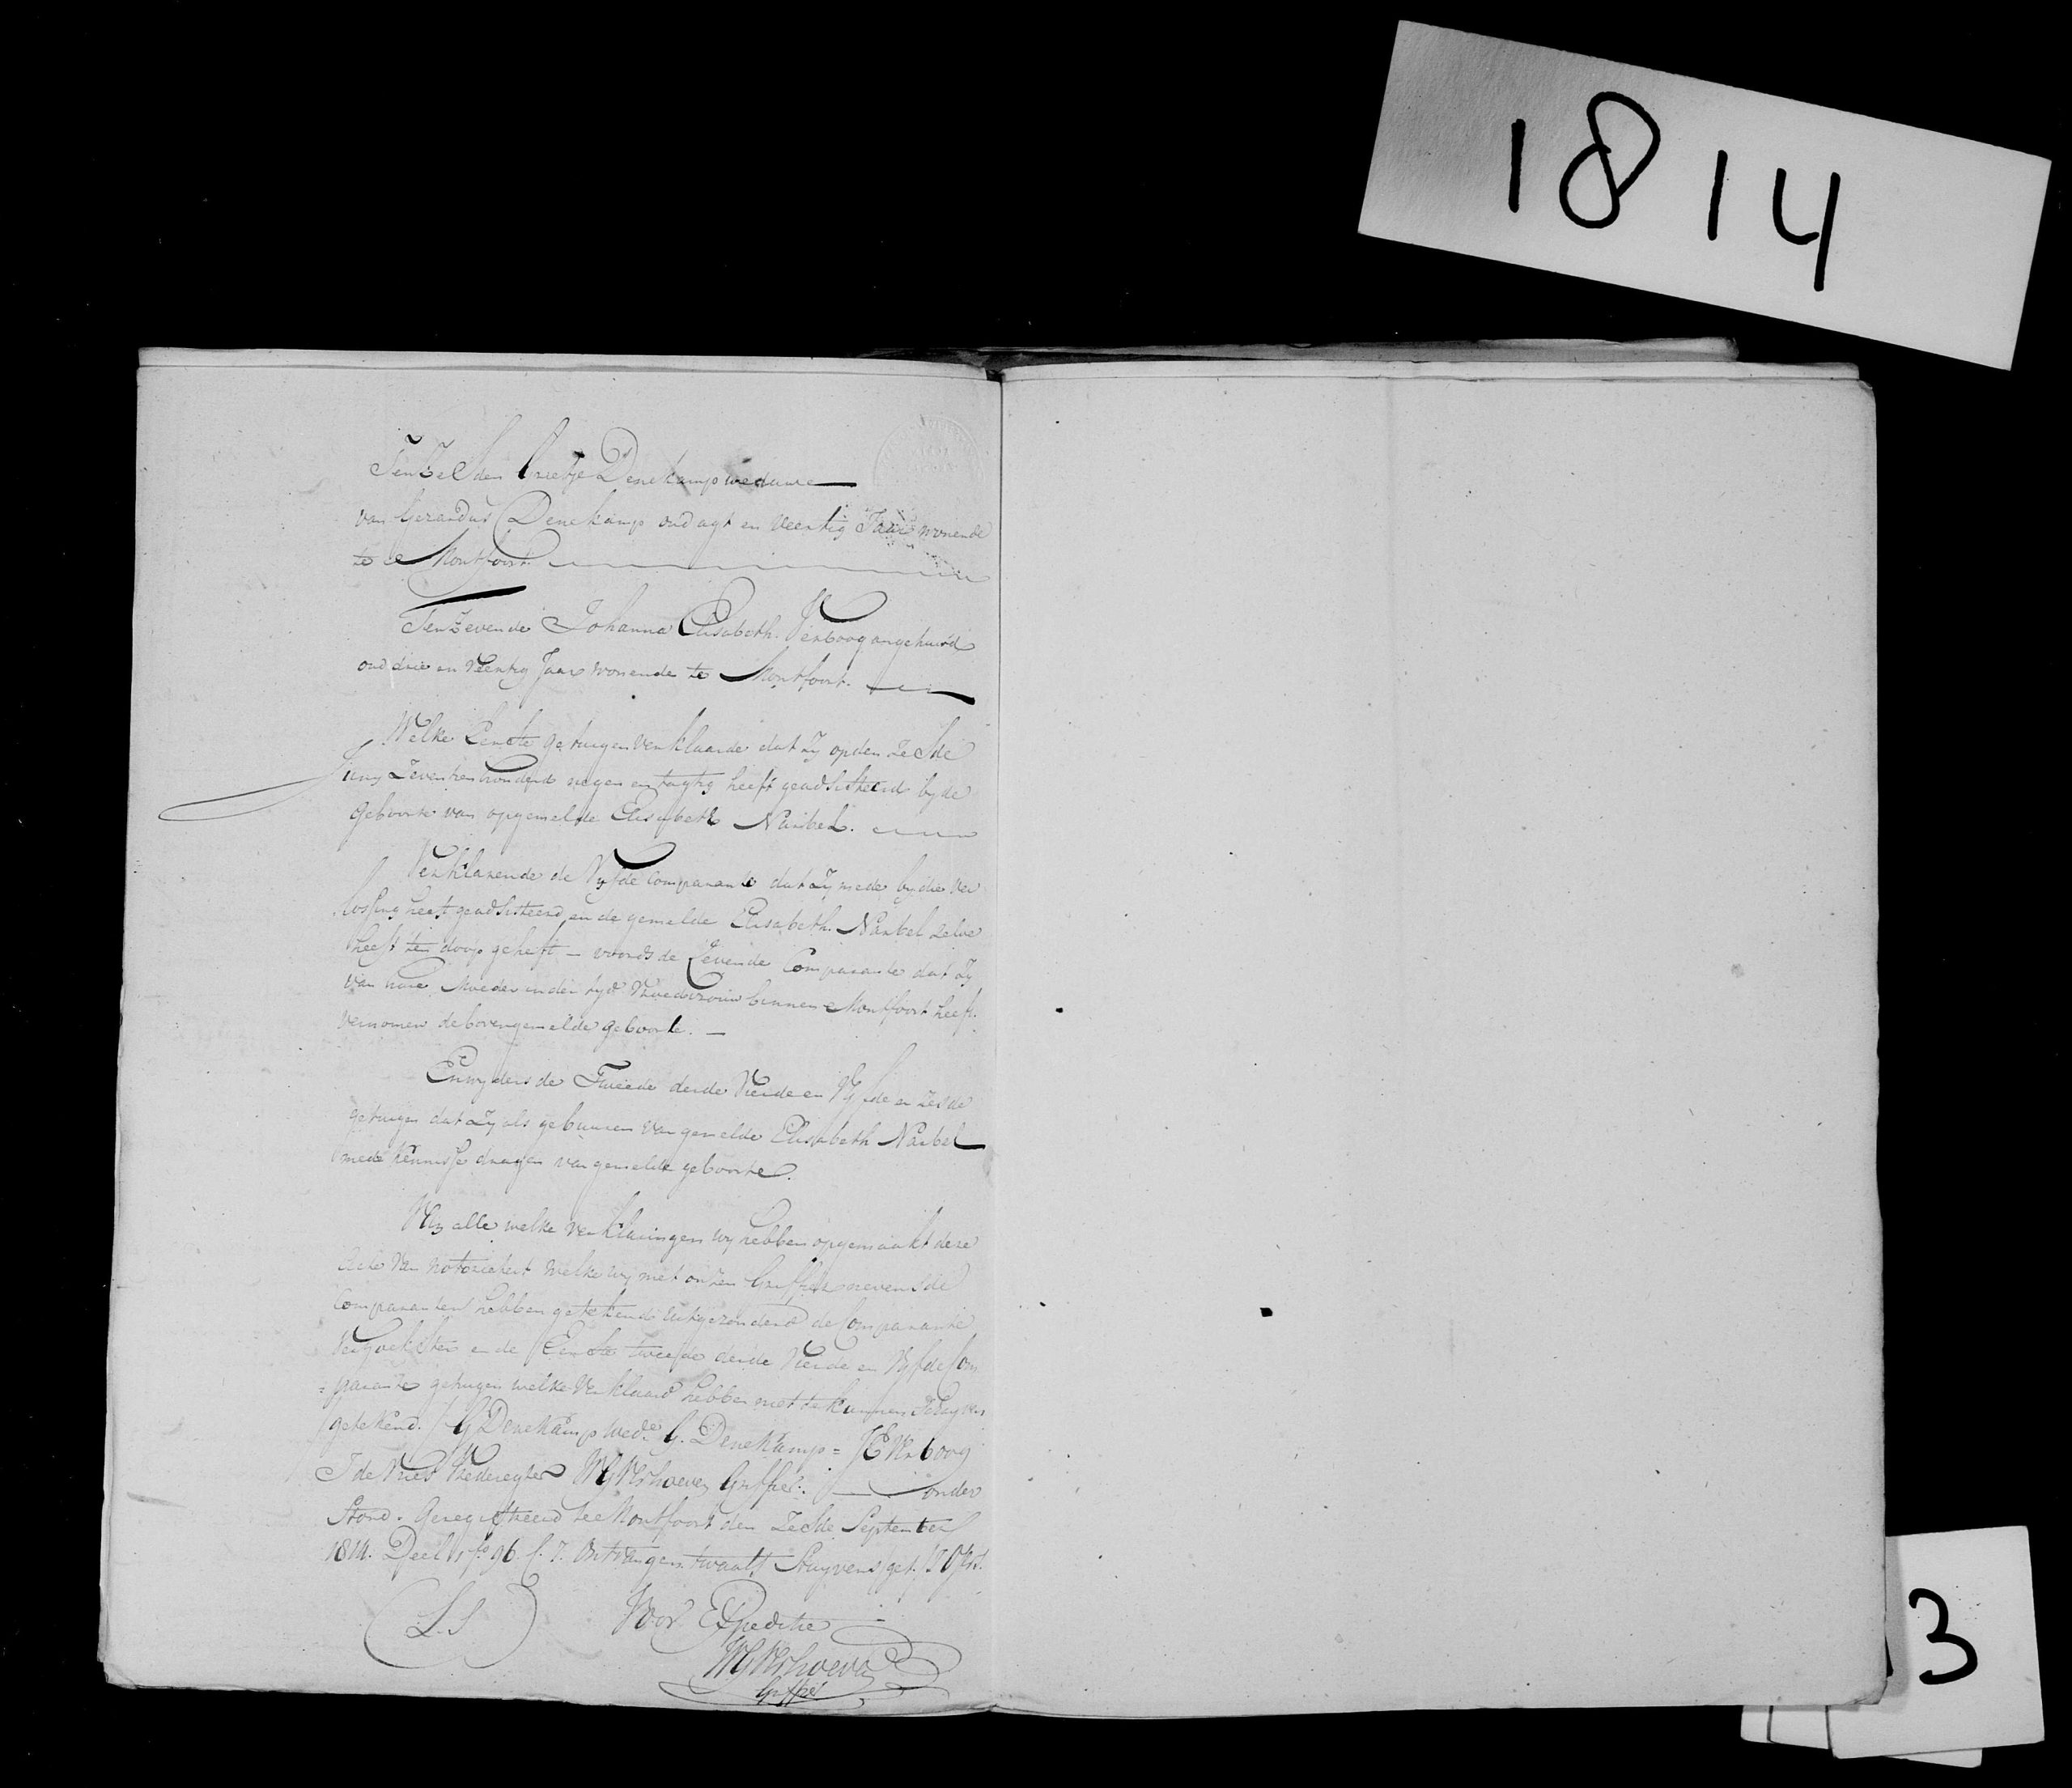 1814
Ten Zesden Grietje Denekamp weduwe
van Gerardus Denekamp oud agt en veertig Jaar wonende
te Montfoort
Ten Zevende Johanna Elisabeth Verboog ongehuwd
oud drie en veertig Jaar wonende te Montfoort.
Welke Eerste getuigen verklaarde dat zy op den zesde
Juny Zeventien honderd negen en tagtig heeft geadsisteerd by de
geboorte van opgemelde Elisabeth Narbel.
Verklarende de Vyfde Comparante dat zy mede by die ver
lossing heeft geadsisteerd en de gemelde Elisabeth Narbel zelve
heeft ten doop geheft – voords de Zevende Comparante dat zy
van hare Moeder in der tyd Vroedvrouw binnen Montfoort heeft
vernomen de bovengemelde geboorte. –
En wyders de Tweede derde Vierde en Vyfde en zesde
getuigen dat zy als gebuuren van gemelde Elisabeth Narbel
mede kennisse dragen van gemelde geboorte.
Van alle welke verklaringen wy hebben opgemaakt deze
Acte van notorieteit welke wy met onzen Griffier nevens de
Comparanten hebben getekend uitgezonderd de Comparante
Verzoekster en de Eerste tweede derde Vierde en Vyfde Com
=parante getuigen welke verklaard hebben niet te kunnen schryven
getekend. / G Denekamp wede. G. Denekamp = J E Verboog
J de Vries Vrederegter W G Verhoeven Griffier. / onder
Stond. Geregistreerd te Montfoort den Zesde September
1814. Deel fo. 96 C. 7. Ontvangen twaalf Stuyvers get.
L. S Voor Expeditie
W G Verhoeven
Griffier
3